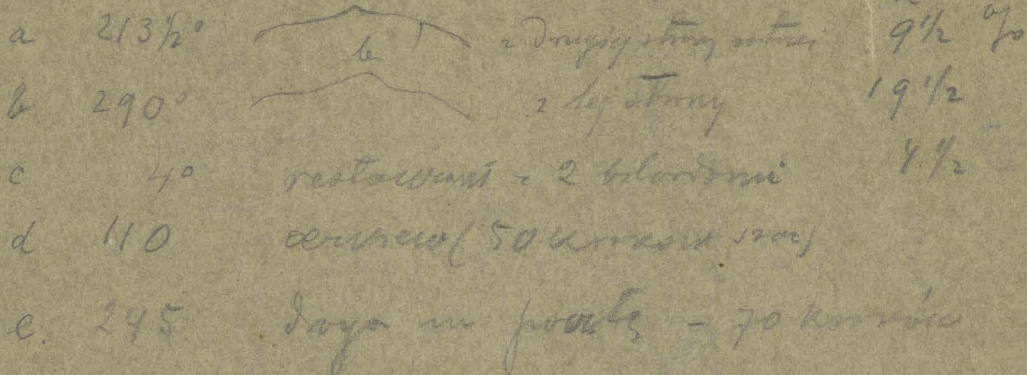 a 213½° z drugiej strony 9½ %
b
b 290° z tej strony 19½
c 4° restauracja z 2 bilardami 4½
d 110 (50 kroków
e. 245 droga na pocztę - 70 kroków